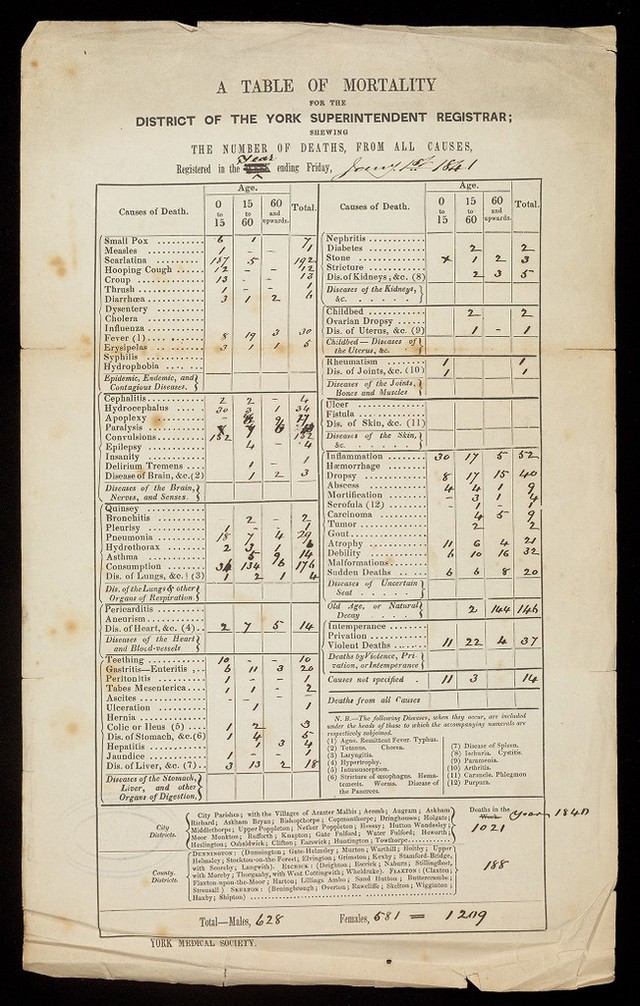 A TABLE OF MORTALITY
FOR THE
DISTRICT OF THE YORK SUPERINTENDENT REGISTRAR;
SHEWING
THE NUMBER OF DEATHS, FROM ALL CAUSES,
Year
Registered in the ending Friday, Jany 1st 1841
Causes of Death. Age. 0 to 15 15 to 60 60 and upwards. Total.
Small Pox 6 1 7
Measles 1 - 1
Scarlatina 187 5 - 192
Hooping Cough 12 - - 12
Croup 13 - - 13
Thrush 1 - - 1
Diarrhœa 3 1 2 6
Dysentery
Cholera
Influenza
Fever (1) 8 19 3 30
Erysipelas 3 1 1 5
Syphilis
Hydrophobia
Epidemic, Endemic, and
Contagious Diseases.
Cephalitis 2 2 - 4
Hydrocephalus 30 3 1 34
Apoplexy
Paralysis
Convulsions 152 152
Epilepsy 4 - 4
Insanity
Delirium Tremens 1 - 1
Disease of Brain, &c. (2) 1 2 3
Diseases of the Brain,
Nerves, and Senses.
Quinsey
Bronchitis 2 - 2
Pleurisy 1 - - 1
Pneumonia 18 7 4 29
Hydrothorax 2 3 1 6
Asthma 5 9 14
Consumption 134 176
Dis. of Lungs, &c. (3) 1 2 1 4
Dis. of the Lungs & other
Organs of Respiration.
Pericarditis
Aneurism
Dis. of Heart, &c. (4) 2 7 5 14
Diseases of the Heart
and Blood-vessels
Teething 10 - - 10
Gastritis—Enteritis 6 11 3 20
Peritonitis 1 - - 1
Tabes Mesenterica 1 1 - 2
Ascites
Ulceration 1 1
Hernia
Colic or Ileus (5) 1 2 3
Dis. of Stomach, &c. (6) 1 4 5
Hepatitis 1 3 4
Jaundice 1 - - 1
Dis. of Liver, &c. (7) 3 13 2 18
Diseases of the Stomach,
Liver, and other
Organs of Digestion.
Causes of Death. Age. 0 to 15 15 to 60 60 and upwards. Total.
Nephritis
Diabetes 2 2
Stone 1 2 3
Stricture
Dis. of Kidneys, &c. (8) 2 3 5
Diseases of the Kidneys,
&c.
Childbed 2 2
Ovarian Dropsy
Dis. of Uterus, &c. (9) 1 - 1
Childbed—Diseases of
the Uterus, &c.
Rheumatism 1 1
Dis. of Joints, &c. (10) 1 1
Diseases of the Joints,
Bones and Muscles
Ulcer
Fistula
Dis. of Skin, &c. (11)
Diseases of the Skin,
&c.
Inflammation 30 17 5 52
Hæmorrhage
Dropsy 8 17 15 40
Abscess 4 4 1 9
Mortification - 3 1 4
Scrofula (12) - 1 - 1
Carcinoma 4 5 9
Tumor 2 2
Gout
Atrophy 11 6 4 21
Debility 6 10 16 32
Malformations
Sudden Deaths 6 6 8 20
Diseases of Uncertain
Seat
Old Age, or Natural
Decay 2 144 146
Intemperance
Privation
Violent Deaths 11 22 4 37
Deaths by Violence, Pri-
vation, or Intemperance
Causes not specified 11 3 14
Deaths from all Causes
N. B.—The following Diseases, when they occur, are included
under the heads of those to which the accompanying numerals are
respectively subjoined.
(1) Ague. Remittent Fever. Typhus.
(2) Tetanus. Chorea.
(3) Laryngitis.
(4) Hypertrophy.
(5) Intussusception.
(6) Stricture of œsophagus. Hema-
temesis. Worms. Disease of
the Pancreas.
(7) Disease of Spleen.
(8) Ischuria. Cystitis.
(9) Paramenia.
(10) Arthritis.
(11) Carbuncle. Phlegmon
(12) Purpura.
City
Districts.
City Parishes; with the Villages of Acaster Malbis; Acomb; Angram; Askham
Richard; Askham Bryan; Bishopthorpe; Copmanthorpe; Dringhouses; Holgate;
Middlethorpe; Upper Poppleton; Nether Poppleton; Hessay; Hutton Wandesley;
Moor Monkton; Rufforth; Knapton; Gate Fulford; Water Fulford; Heworth;
Heslington; Osbaldwick; Clifton; Earswick; Huntington; Towthorpe.
Deaths in the year 1840
1021
County.
Districts.
DUNNINGTON; (Dunnington; Gate-Helmsley; Murton; Warthill; Holtby; Upper
Helmsley; Stockton-on-the-Forest; Elvington; Grimston; Kexby; Stamford-Bridge,
with Scoreby; Langwith). ESCRICK; (Deighton; Escrick; Naburn; Stillingfleet,
with Moreby; Thorganby, with West Cottingwith; Wheldrake). FLAXTON; (Claxton;
Flaxton-upon-the-Moor; Harton; Lillings Ambo; Sand Hutton; Buttercrambe;
Strensall) SKELTON; (Beningbrough; Overton; Rawcliffe; Skelton; Wigginton;
Haxby; Shipton)
188
Total—Males, 628 Females, 581 = 1209
YORK MEDICAL SOCIETY.